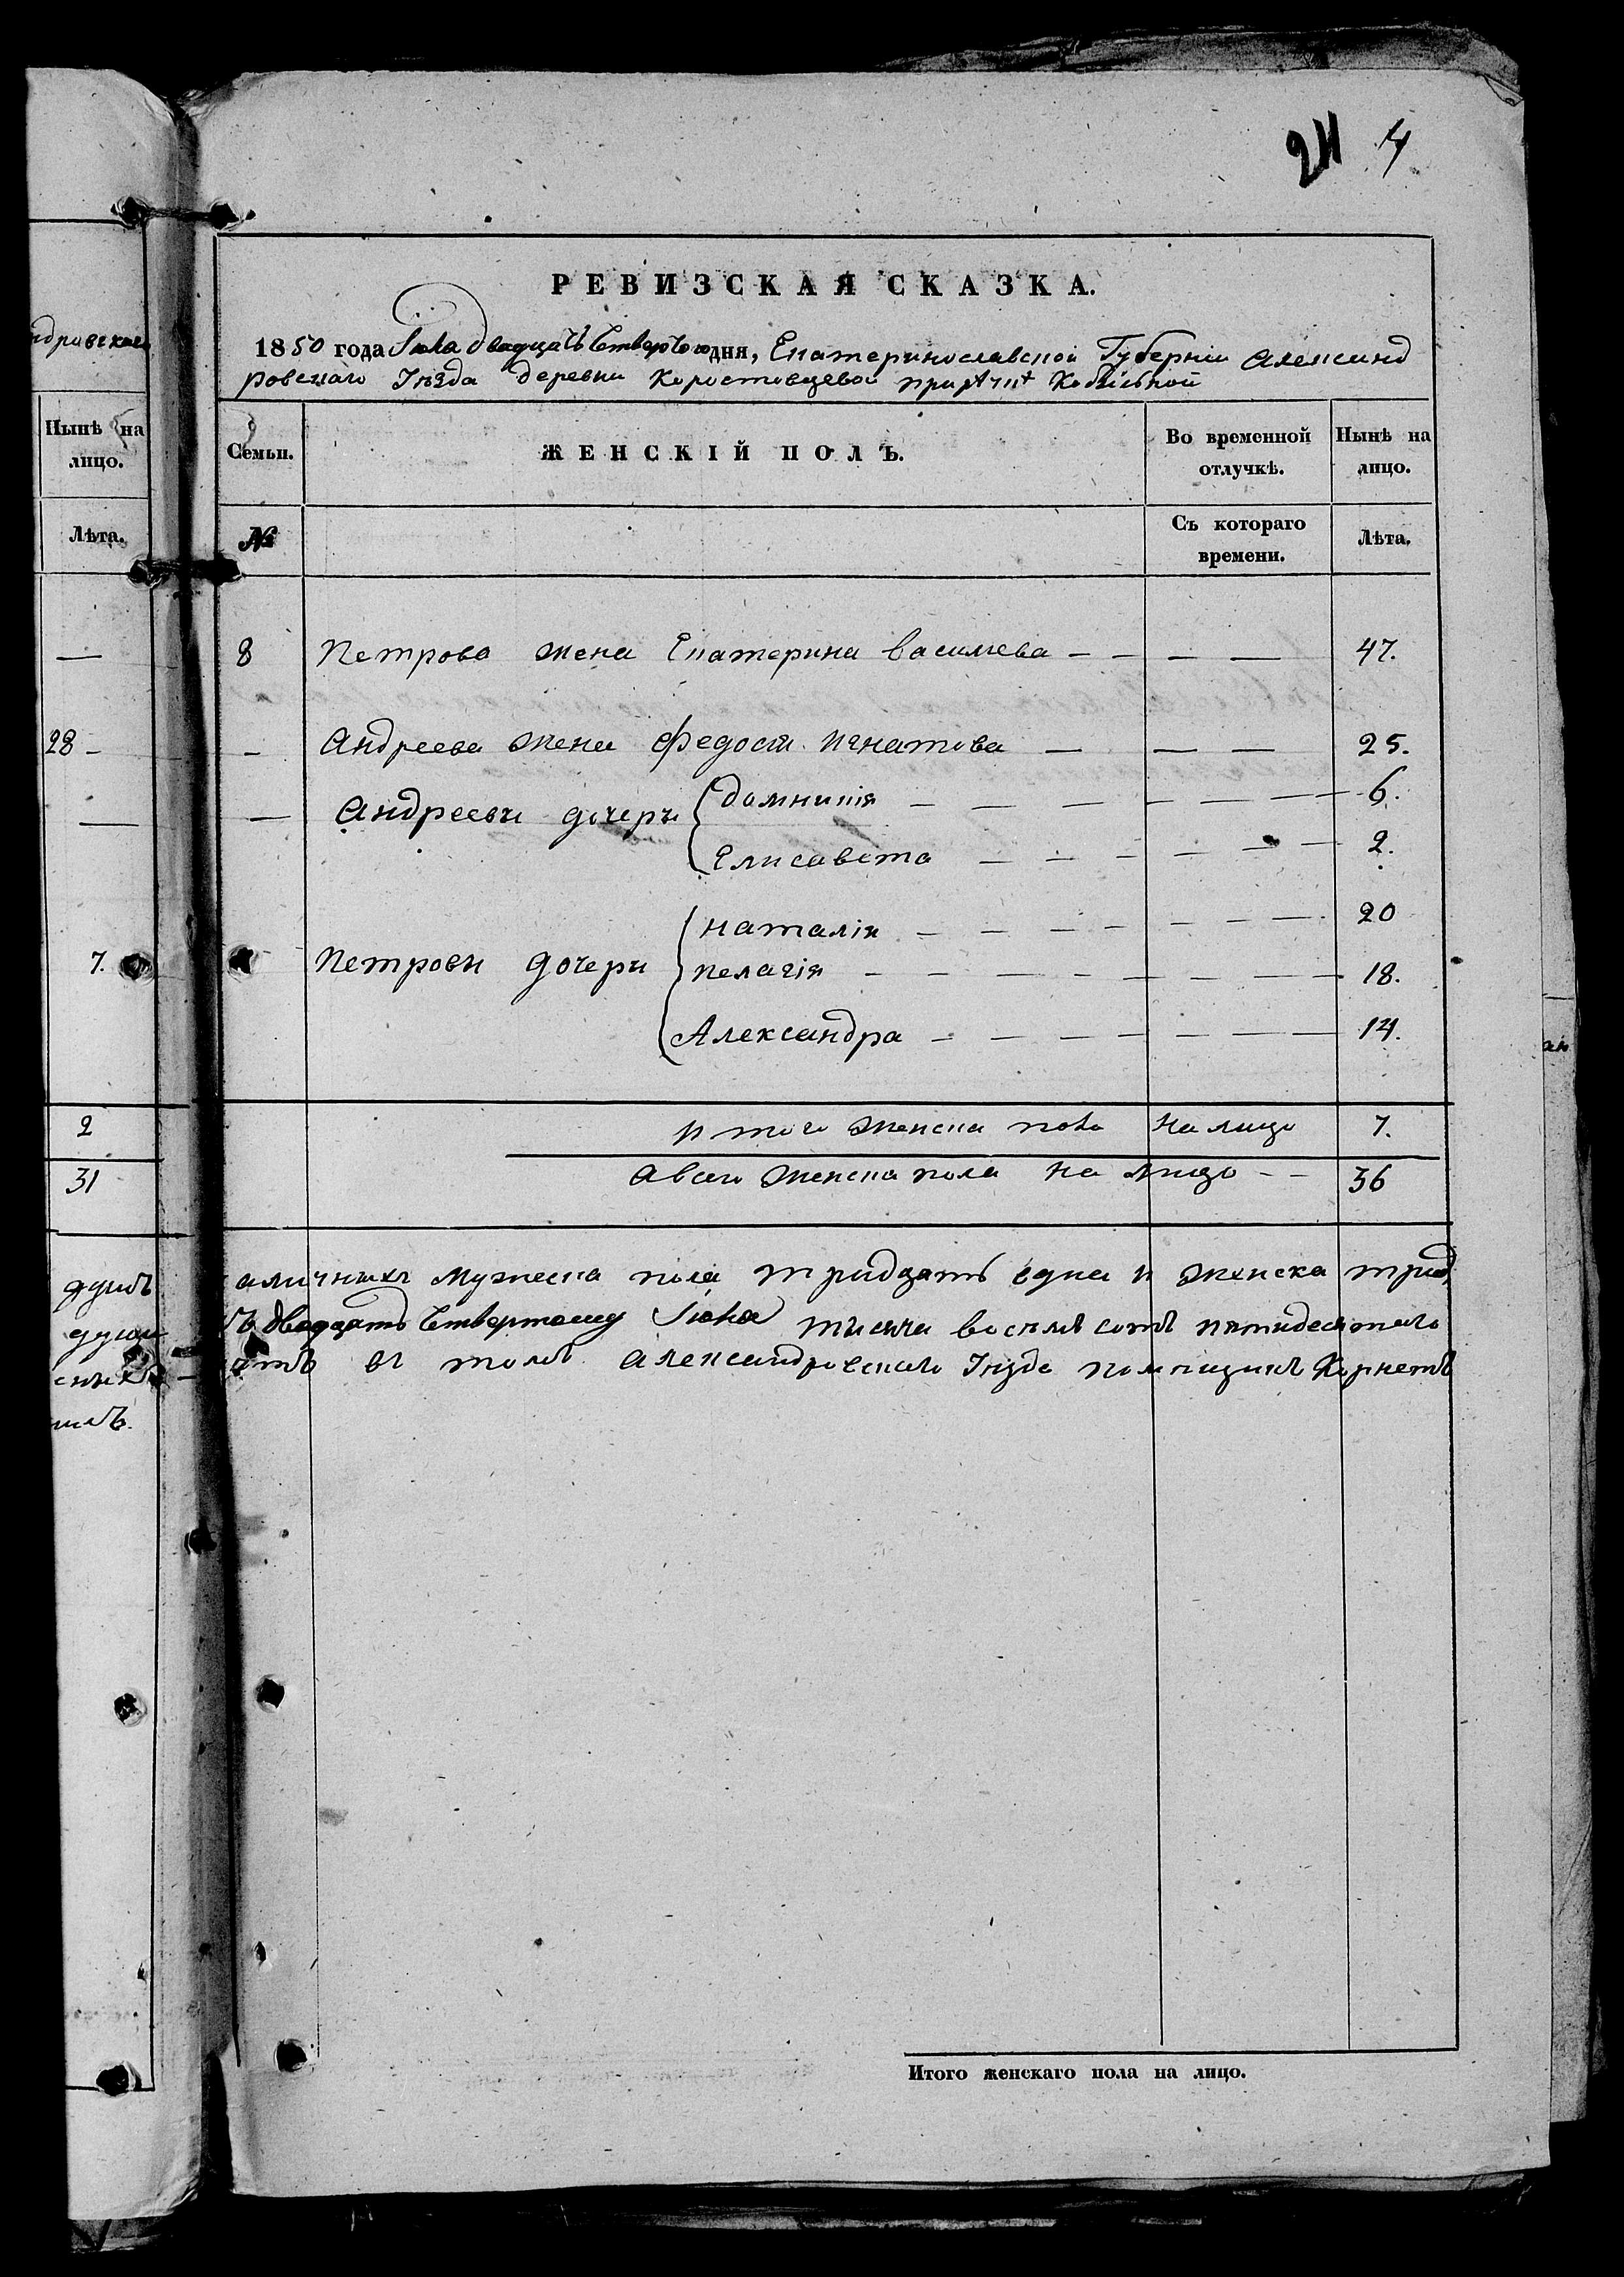 24 4
ндравскаго
Нынѣ на
лицо.
Лѣта.
—
28 –
—
7.
2
31
душъ
души
РЕВИЗСКАЯ СКАЗКА.
1850 года Іюля двадцать четвертого дня, Екатеринославской Губерніи Александ
ровскаго Уѣзда деревни Коростовцевой при рѣчкѣ Кобыльной
Семьи.
ЖЕНСКІЙ ПОЛЪ.
Во временной
отлучкѣ.
Нынѣ на
лицо.
№
Съ котораго
времени.
Лѣта.
8 Петрова жена Екатерина васильева – – — — 47.
– Андреева жена Федосія Игнатова — — — 25.
— Андреевы дочери
домникія — — — – — — — 6.
Елисавета — — – — — — 2.
Петровы дочери
наталія – – — – – — — 20
пелагія – – — — – — — 18.
Александра – – — — – — — 14.
Итого женска пола на лицо 7.
А всего женска пола на лицо – – 36
аличныхъ мужеска пола тридцать одна и женска трид
двадцать четвертому Іюля тысяча восемь сотъ пятидесятого
въ томъ Александровскаго Уѣзда помѣщикъ Корнетъ
Итого женскаго пола на лицо.